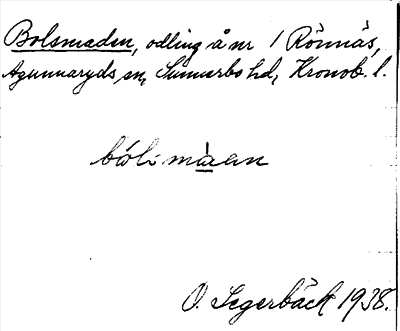 Bolsmaden, odling å nr 1 Rönnäs,
Agunnaryds sn, Sunnerbo hd, Kronob. l.
bólsmàen
O. Segerbäck 1938.